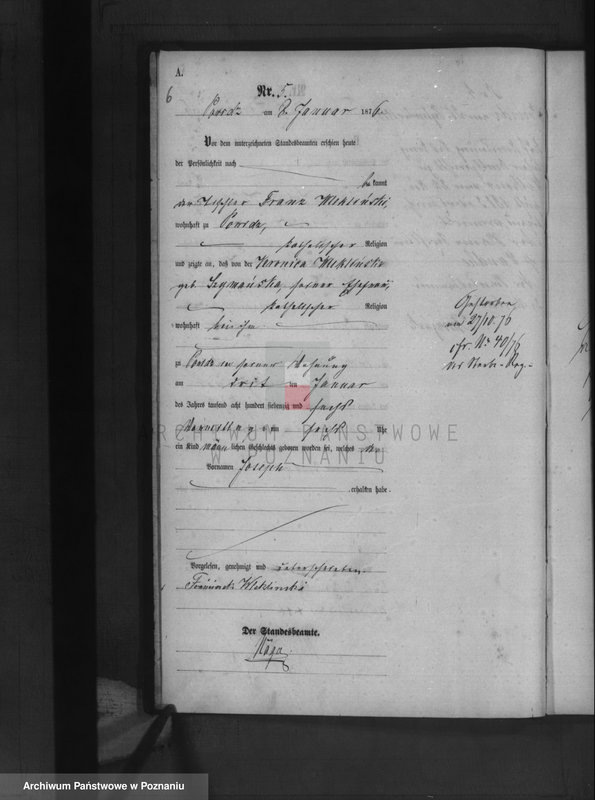 A.
6
Nr. 5.
Powidz am 8. Januar 1876.
Vor dem unterzeichneten Standesbeamten erschien heute
der Persönlichkeit nach
bekannt
der Franz
wohnhaft zu Powidz,
katholischer Religion
und zeigte an, daß von der Veronica
geb. seiner Ehefrau,
katholischer Religion
wohnhaft bei ihm
zu Powidz in seiner Wohnung
am Januar
des Jahres tausend acht hundert siebenzig und sechs
Vormittags um sechs Uhr
ein Kind männlichen Geschlechts geboren worden sei, welches
Vornamen Joseph
erhalten habe.
Vorgelesen, genehmigt und unterschrieben
Der Standesbeamte.
Gestorben
am 27/10. 76
cfr. No 40/76
des Sterbe-Reg.
ARCHIWUM PAŃSTWOWE
W POZNANIU
Archiwum Państwowe w Poznaniu